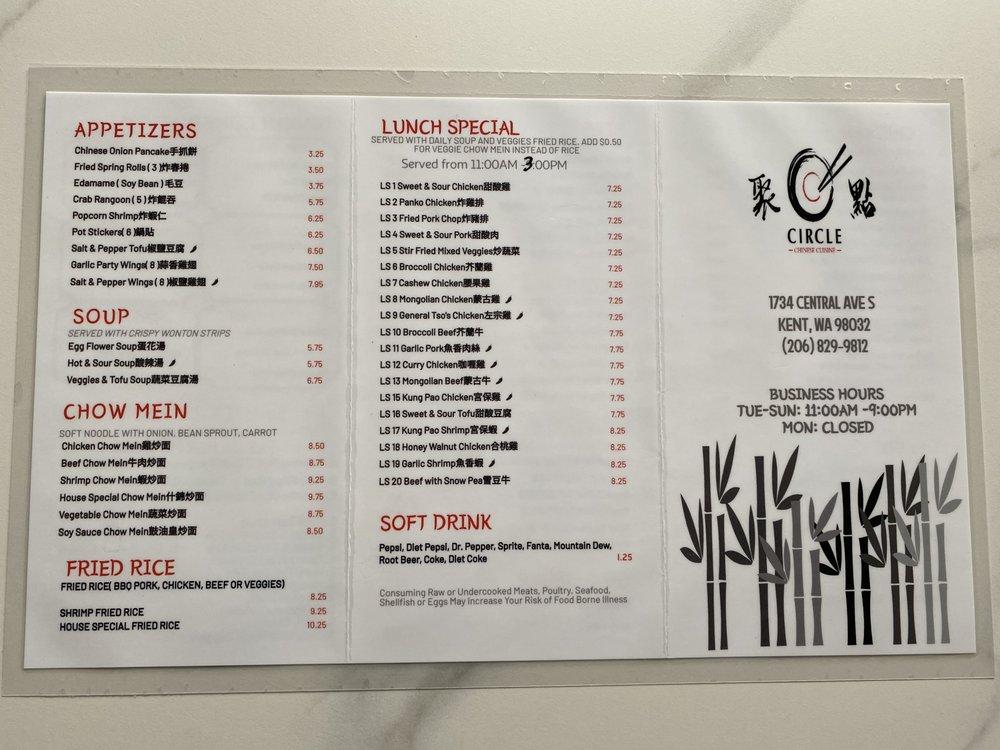 APPETIZERS
Chinese Onion Pancake手抓餅 3.25
Fried Spring Rolls ( 3 )炸春捲 3.50
Edamame ( Soy Bean ) 毛豆 3.75
Crab Rangoon ( 5 ) 炸餛吞 5.75
Popcorn Shrimp炸蝦仁 6.25
Pot Stickers( 6 )鍋貼 6.25
Salt & Pepper Tofu椒鹽豆腐 6.50
Garlic Party Wings( 8 )蒜香雞翅 7.50
Salt & Pepper Wings ( 8 )椒鹽雞翅 7.95
SOUP
SERVED WITH CRISPY WONTON STRIPS
Egg Flower Soup蛋花湯 5.75
Hot & Sour Soup酸辣湯 5.75
Veggies & Tofu Soup蔬菜豆腐湯 6.75
CHOW MEIN
SOFT NOODLE WITH ONION, BEAN SPROUT, CARROT
Chicken Chow Mein雞炒面 8.50
Beef Chow Mein牛肉炒面 8.75
Shrimp Chow Mein蝦炒面 9.25
House Special Chow Mein什錦炒面 9.75
Vegetable Chow Mein蔬菜炒面 8.75
Soy Sauce Chow Mein豉油皇炒面 8.50
FRIED RICE
FRIED RICE( BBQ PORK, CHICKEN, BEEF OR VEGGIES)
8.25
SHRIMP FRIED RICE 9.25
HOUSE SPECIAL FRIED RICE 10.25
LUNCH SPECIAL
SERVED WITH DAILY SOUP AND VEGGIES FRIED RICE, ADD $0.50
FOR VEGGIE CHOW MEIN INSTEAD OF RICE
Served from 11:00AM -3:00PM
LS 1 Sweet & Sour Chicken甜酸雞 7.25
LS 2 Panko Chicken炸雞排 7.25
LS 3 Fried Pork Chop炸豬排 7.25
LS 4 Sweet & Sour Pork甜酸肉 7.25
LS 5 Stir Fried Mixed Veggies炒蔬菜 7.25
LS 6 Broccoli Chicken芥蘭雞 7.25
LS 7 Cashew Chicken腰果雞 7.25
LS 8 Mongolian Chicken蒙古雞 7.25
LS 9 General Tso's Chicken左宗雞 7.25
LS 10 Broccoli Beef芥蘭牛 7.75
LS 11 Garlic Pork魚香肉絲 7.75
LS 12 Curry Chicken咖喱雞 7.75
LS 13 Mongolian Beef蒙古牛 7.75
LS 15 Kung Pao Chicken宮保雞 7.75
LS 16 Sweet & Sour Tofu甜酸豆腐 7.75
LS 17 Kung Pao Shrimp宮保蝦 8.25
LS 18 Honey Walnut Chicken合桃雞 8.25
LS 19 Garlic Shrimp魚香蝦 8.25
LS 20 Beef with Snow Pea雪豆牛 8.25
SOFT DRINK
Pepsi, Diet Pepsi, Dr. Pepper, Sprite, Fanta, Mountain Dew,
Root Beer, Coke, Diet Coke 1.25
Consuming Raw or Undercooked Meats, Poultry, Seafood,
Shellfish or Eggs May Increase Your Risk of Food Borne Illness
聚 點
CIRCLE
CHINESE CUISINE
1734 CENTRAL AVE S
KENT, WA 98032
(206) 829-9812
BUSINESS HOURS
TUE-SUN: 11:00AM -9:00PM
MON: CLOSED